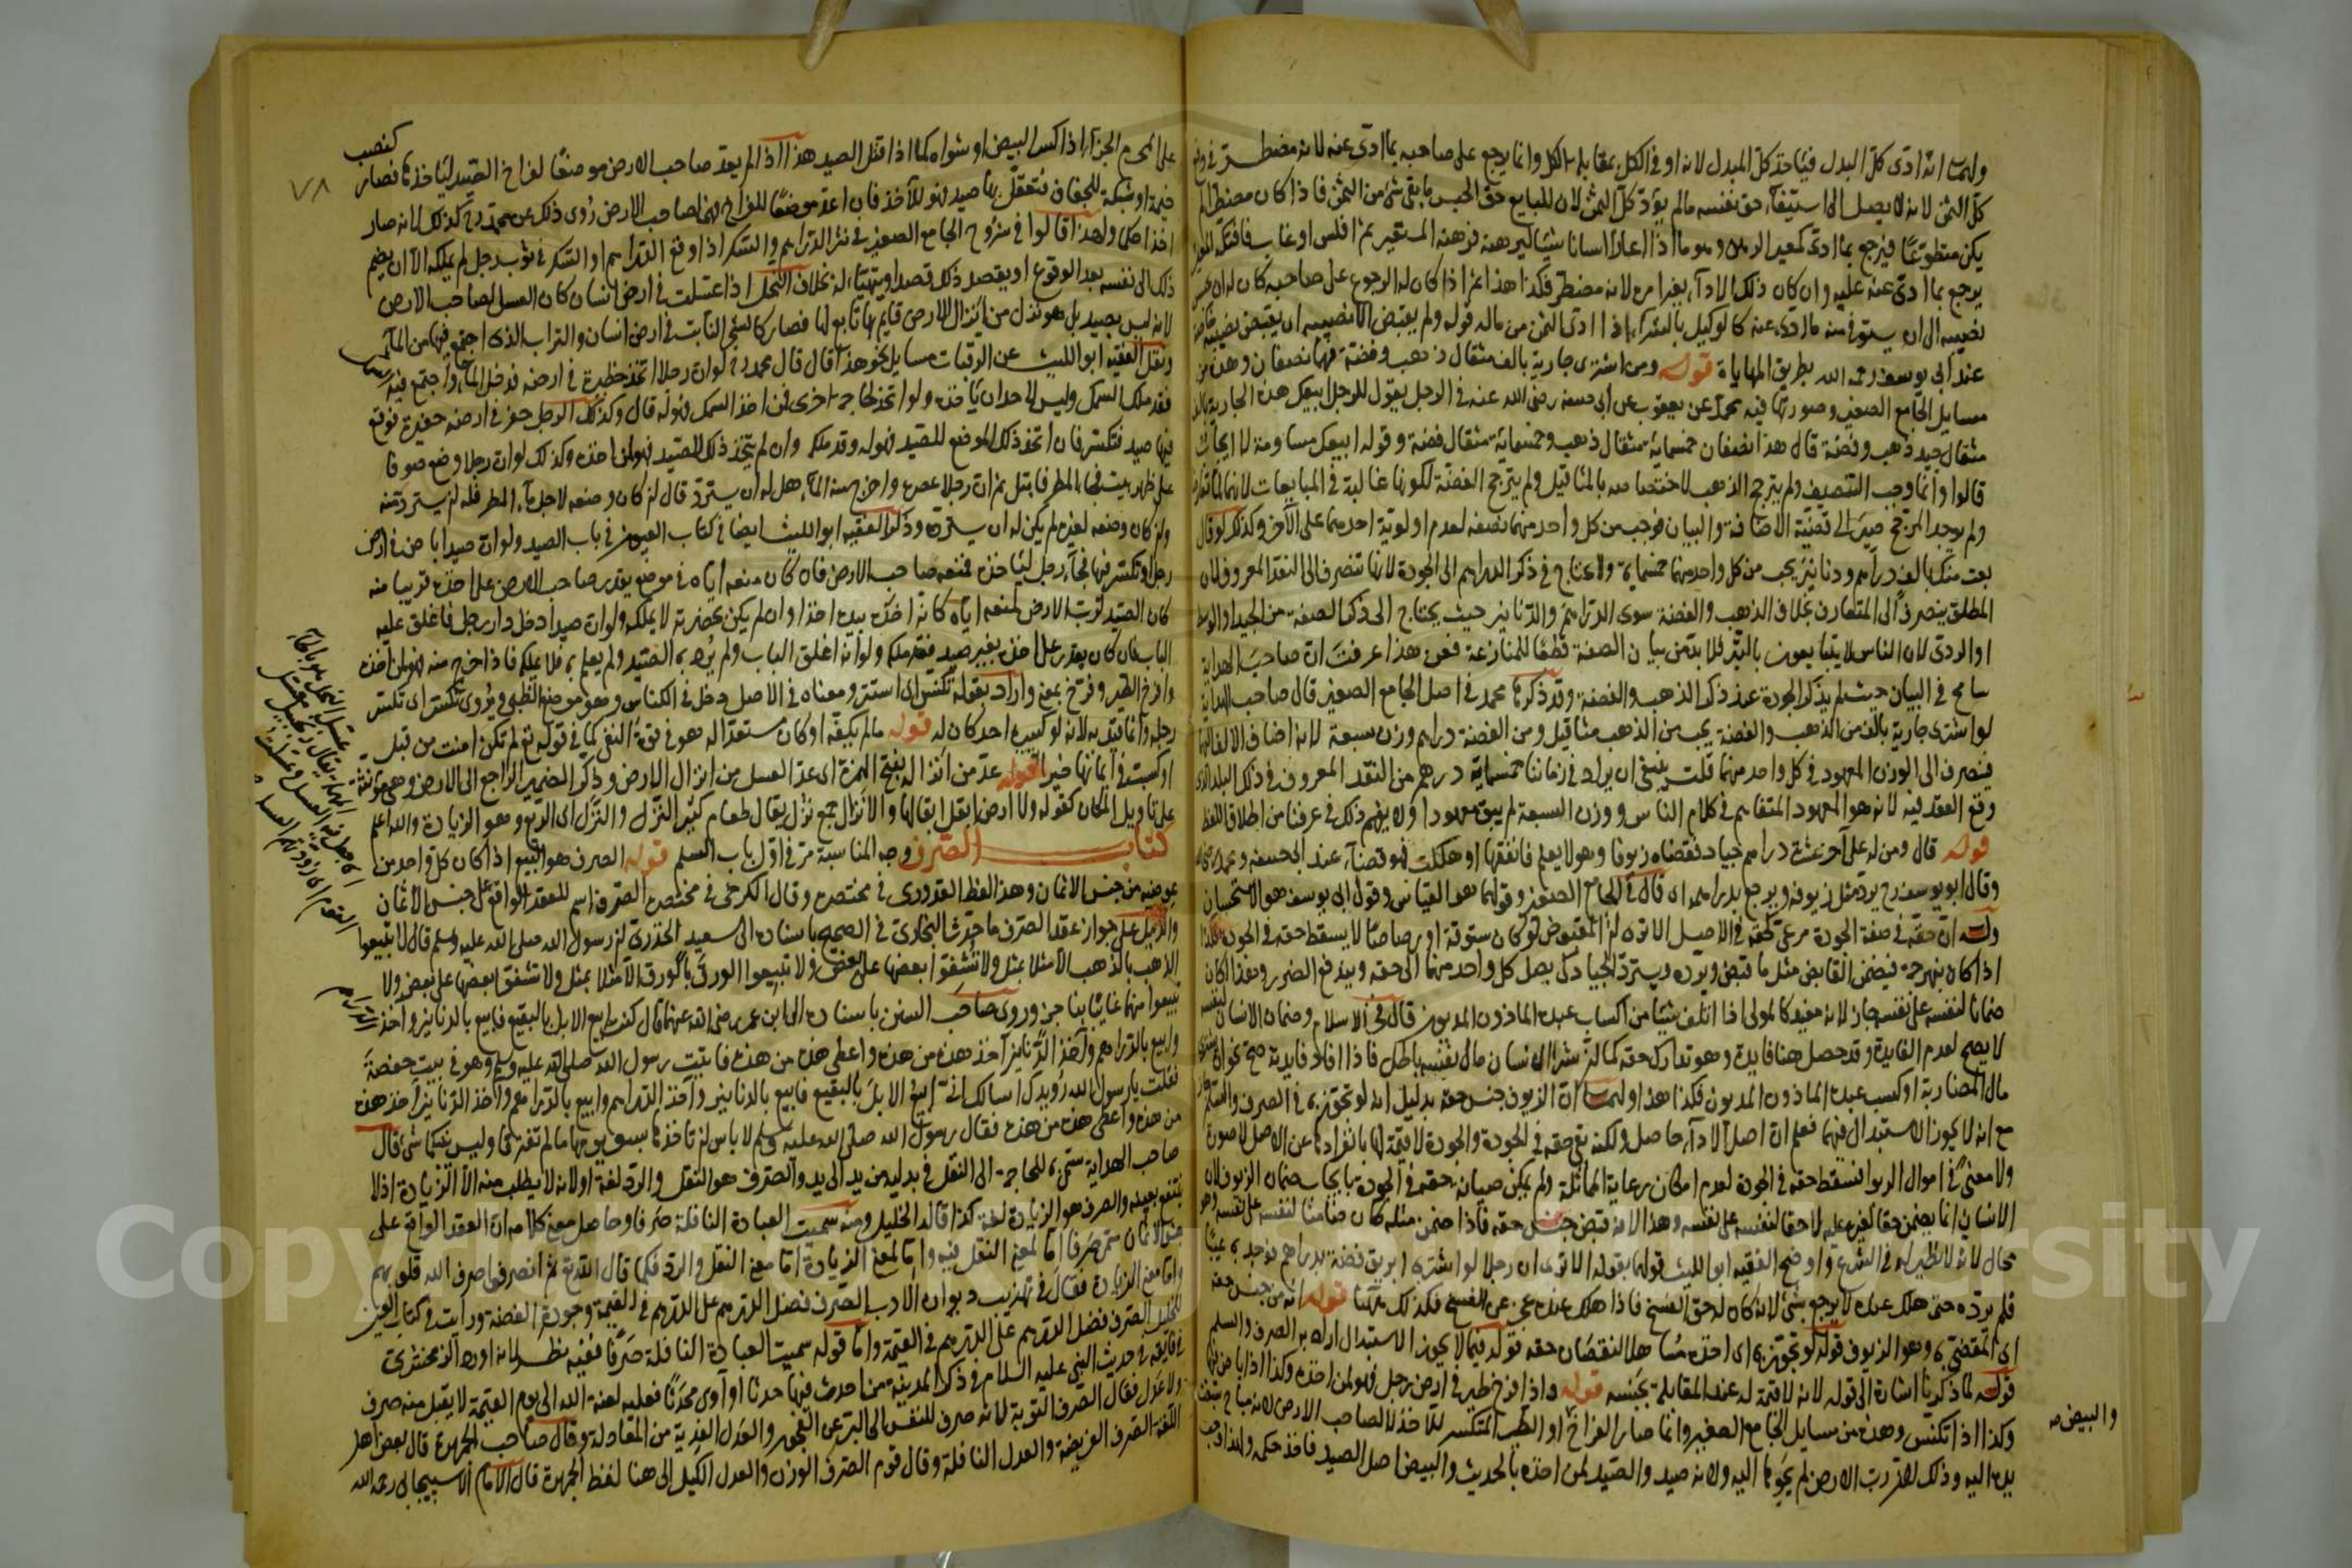 ولهما انه ادى كل البدل فيأخذ كل المبدل لانه اوفى الكل بمقابلة الكل وانما يرجع على صاحبه بما ادى عنه لانه مضطر في دفع
كل الثمن لانه لا يصل الى استيفاء حق نفسه مالم يؤد كل الثمن لان للبايع حق الحبس ما بقى شئ من الثمن فاذا كان مضطرا لم
يكن متطوعا فيرجع بما ادى كمعير الرهن وهو ما اذا اعار انسانا شيئا ليرهنه فرهنه المستعير ثم افلس او غاب فافتكه المعير
يرجع بما ادى عنه عليه وان كان ذلك الاداء بغير امره لانه مضطر فكذا هذا ثم اذا كان له الرجوع على صاحبه كان له ان يحبس
نصيبه الى ان يستوفى منه ما ادى عنه كالوكيل بالشراء اذا ادى الثمن من ماله قوله ولم يقبض الا نصيبه ان يقبض نصيبه
عند ابى يوسف رحمه الله بطريق المهاياة قوله ومن اشترى جارية بالف مثقال ذهب وفضة فهما نصفان وهذه من
مسايل الجامع الصغير وصورتها فيه محمد عن يعقوب عن ابى حنيفة رضى الله عنه في الرجل يقول للرجل ابيعك هذه الجارية بالف
مثقال جيد ذهب وفضة قال هذا نصفان خمسماية مثقال ذهب وخمسماية مثقال فضة وقوله ابيعك مساومة لا ايجاب
قالوا وانما وجب التنصيف ولم يترجح الذهب لاختصاصه بالمثاقيل ولم يترجح الفضة لكونها غالبة في المبايعات لانهما لما تعارضا
ولم يوجد المرجح صير الى قضية الاضافة والبيان فوجب من كل واحد منهما نصفه لعدم اولوية احدهما على الآخر وكذلك لو قال
بعت منك بالف دراهم ودنانير يجب من كل واحد منهما خمسماية ولا يحتاج في ذكر الدراهم الى الجودة لانها تنصرف الى النقد المعروف لان
المطلق ينصرف الى المتعارف بخلاف الذهب والفضة سوى الدراهم والدنانير حيث يحتاج الى ذكر الصفة من الجيد او الوسط
او الردى لان الناس لا يتبايعون بالتبر فلا بد من بيان الصفة قطعا للمنازعة فعن هذا عرفت ان صاحب الهداية
سامح في البيان حيث لم يذكر الجودة عند ذكر الذهب والفضة وقد ذكرها محمد في اصل الجامع الصغير قال صاحب الهداية
لو اشترى جارية بالف من الذهب والفضة يجب من الذهب مثاقيل ومن الفضة دراهم وزن سبعة لانه اضاف الالف اليهما
فينصرف الى الوزن المعهود في كل واحد منهما قلت ينبغى ان يراد في زماننا خمسماية درهم من النقد المعروف في ذلك البلد الذى
وقع العقد فيه لانه هو المعهود المتفاهم في كلام الناس ووزن السبعة لم يبق معهودا ولا يفهم ذلك في عرفنا من اطلاق اللفظ
قوله قال ومن له على آخر عشرة دراهم جياد فقضاه زيوفا وهو لا يعلم فانفقها او هلكت فهو قضاء عند ابى حنيفة ومحمد
وقال ابو يوسف رح يرد مثل زيوفه ويرجع بدراهمه اى قال في الجامع الصغير وقولهما هو القياس وقول ابى يوسف هو الاستحسان
وله ان حقه في صفة الجودة مرعى كحقه في الاصل الا ترى ان المقبوض لو كان ستوقة او رصاصا لا يسقط حقه في الجودة فكذا
اذا كان نبهرجة فيضمن القابض مثل ما قبض ويرده ويسترد الجياد كى يصل كل واحد منهما الى حقه ويندفع الضرر وهذا كان
ضمانا لنفسه على نفسه جاز لانه مفيد كالمولى اذا اتلف شيئا من اكساب عبده الماذون المديون قال فخر الاسلام وضمان الانسان لنفسه
لا يصح لعدم الفايدة وقد حصل هنا فايدة وهو تدارك حقه كما ان شراء الانسان مال نفسه باطل فاذا افاد فايدة صح نحو ان يشترى
مال المضاربة او كسب عبده الماذون المديون فكذا هذا ولهما ان الزيوف جنس حقه بدليل انه لو تجوز به في الصرف والسلم جاز
مع انه لا يجوز الاستبدال فيهما فعلم ان اصل الاداء حاصل ولكنه بقى حقه في الجودة والجودة لا قيمة لها بانفرادها عن الاصل لا صورة
ولا معنى في اموال الربوا فسقط حقه في الجودة لعدم امكان رعاية المماثلة ولم يمكن صيانة حقه في الجودة بايجاب ضمان الزيوف لان
الانسان انما يضمن حقا لغيره عليه لا حقا لنفسه على نفسه وهذا لانه قبض جنس حقه فاذا ضمن مثله كان ضامنا لنفسه على نفسه وهو
محال لانه لا نظير له في الشرع واوضح الفقيه ابو الليث قولهما بقوله الا ترى ان رجلا لو اشترى ابريق فضة بدراهم فوجد به عيبا
فلم يرده حتى هلك عنده لا يرجع بشئ لانه كان له حق الفسخ فاذا هلك عنده عجز عن الفسخ فكذلك ههنا قوله انه من جنس حقه
اى المقتضى به وهو الزيوف قوله لو تجوز به اى اخذه مساهلا لنقصان حقه قوله فيما لا يجوز الاستبدال اراد به الصرف والسلم
قوله لما ذكرنا اشارة الى قوله لانه لا قيمة له عند المقابلة بجنسه قوله واذا افرخ طير في ارض رجل فهو لمن اخذه وكذا اذا باض فيها
وكذا اذا تكنس وهذه من مسايل الجامع الصغير وانما صار الفراخ او الظبى المتكنس للآخذ لا لصاحب الارض لانه مباح سبقت
يده اليه وذلك لان رب الارض لم يحوها اليه ولانه صيد والصيد لمن اخذه بالحديث والبيض اصل الصيد فاخذ حكمه ولهذا وجب
والبيض صح
٧٨
على المحرم الجزاء اذا كسر البيض او شواه كما اذا قتل الصيد هذا اذا لم يعد صاحب الارض موضعا لفراخ الصيد ليأخذها فصار كنصب
خيمة او شبكة للجفاف فتعقل بها صيد فهو للآخذ فان اعد موضعا للفراخ فهى لصاحب الارض روى ذلك عن محمد رح كذلك لانه صار
اخذا حكما ولهذا قالوا في شروح الجامع الصغير في نثر الدراهم والسكر اذا وقع الدراهم او السكر في ثوب رجل لم يملكه الا ان يضم
ذلك الى نفسه بعد الوقوع او يقصد ذلك قصدا ويتهيأ له بخلاف النحل اذا عسلت في ارض انسان كان العسل لصاحب الارض
لانه ليس بصيد بل هو نزل من انزال الارض قايم بها تابع لها فصار كالشجر النابت في ارض انسان والتراب الذى اجتمع فيها من الماء
ونقل الفقيه ابو الليث عن الرقيات مسايل نحو هذا قال قال محمد رح لو ان رجلا اتخذ حظيرة في ارضه فدخل الماء واجتمع فيه السمك
فقد ملك السمك وليس لاحد ان يأخذه ولو اتخذ لحاجة اخرى فمن اخذ السمك فهو له قال وكذلك الرجل حفر في ارضه حفيرة فوقع
فيها صيد فتكسر فان اتخذ ذلك الموضع للصيد فهو له وقد ملكه وان لم يتخذ ذلك للصيد فهو لمن اخذه وكذلك لو ان رجلا وضع صوفا
على ظهر بيت فجاء المطر فابتل ثم ان رجلا عصره واخرج منه الماء هل له ان يسترد قال ان كان وضعه لاجل ماء المطر فله ان يسترد منه
وان كان وضعه لغيره لم يكن له ان يسترده وذكر الفقيه ابو الليث ايضا في كتاب العيون في باب الصيد ولو ان صيدا باض في ارض
رجل او تكسر فيها فجاء رجل ليأخذه فمنعه صاحب الارض فان كان منعه اياه في موضع يقدر صاحب الارض على اخذه قريبا منه
كان الصيد لرب الارض لمنعه اياه كانه اخذه بيده اخذا وان لم يكن بحضرته لا يملكه ولو ان صيدا دخل دار رجل فاغلق عليه
الباب فان كان يقدر على اخذه بغير صيد فقد ملكه ولو انه اغلق الباب ولم يرد به الصيد ولم يعلم به فلا يملكه فاذا خرج منه فهو لمن اخذه
وافرخ الطير وفرخ بمعنى واراد بقوله تكنس اى استتر ومعناه في الاصل دخل في الكناس وهو موضع الظبى ويروى تكسر اى تكسر
رجله وانما قيد به لانه لو كسره احد كان له قوله مالم يكفه او كان مستعدا له هو في قوة النفى كما في قوله تع لم تكن آمنت من قبل
او كسبت في ايمانها خيرا قوله عد من انزاله بفتح الهمزة اى عد العسل من انزال الارض وذكر الضمير الراجع الى الارض وهى مؤنثة
على تاويل المكان كقوله ولا ارض ابقل ابقالها والانزال جمع نزل يقال طعام كثير النزل والنزل اى الريع وهو الزيادة والله اعلم
كتاب الصرف وجه المناسبة مر في اول باب السلم قوله الصرف هو البيع اذا كان كل واحد من
عوضيه من جنس الاثمان وهذا لفظ القدورى في مختصره وقال الكرخى في مختصره الصرف اسم للعقد الواقع على جنس الاثمان
والاصل على جواز عقد الصرف ما حدث البخارى في الصحيح باسناده الى ابى سعيد الخدرى ان رسول الله صلى الله عليه وسلم قال لا تبيعوا
الذهب بالذهب الا مثلا بمثل ولا تشفوا بعضها على بعض ولا تبيعوا الورق بالورق الا مثلا بمثل ولا تشفوا بعضها على بعض ولا
تبيعوا منها غايبا بناجز وروى صاحب السنن باسناده الى ابن عمر رضى الله عنهما قال كنت ابيع الابل بالبقيع فابيع بالدنانير وآخذ الدراهم
وابيع بالدراهم وآخذ الدنانير آخذ هذه من هذه واعطى هذه من هذه فاتيت رسول الله صلى الله عليه وسلم وهو في بيت حفصة
فقلت يا رسول الله رويدك اسالك انى ابيع الابل بالبقيع فابيع بالدنانير وآخذ الدراهم وابيع بالدراهم وآخذ الدنانير آخذ هذه
من هذه واعطى هذه من هذه فقال رسول الله صلى الله عليه وسلم لا باس ان تاخذها بسعر يومها مالم تفترقا وليس بينكما شئ قال
صاحب الهداية سمى به للحاجة الى النقل في بدليه من يد الى يد والصرف هو النقل والرد لغة اولانه لا يطلب منه الا الزيادة اذ لا
ينتفع بعينه والصرف هو الزيادة لغة كذا قاله الخليل ومنه سميت العبادة النافلة صرفا وحاصل معنى كلامه ان العقد الواقع على
جنس الاثمان سمى صرفا اما لمعنى النقل فيه واما لمعنى الزيادة اما معنى النقل والرد فكما قال الله تع ثم انصرفوا صرف الله قلوبهم
واما معنى الزيادة فقال في تهذيب ديوان الادب الصرف فضل الدرهم على الدرهم في القيمة وجودة الفضة ورايت في كتاب العين
للخليل الصرف فضل الدرهم على الدرهم في القيمة واما قوله سميت العبادة النافلة صرفا ففيه نظر لانه اورد الزمخشرى
في فايقه في حديث النبى عليه السلام في ذكر المدينة من احدث فيها حدثا او آوى محدثا فعليه لعنة الله الى يوم القيمة لا يقبل منه صرف
ولا عدل فقال الصرف التوبة لانه صرف للنفس الى البر عن الفجور والعدل الفدية من المعادلة وقال صاحب الجمهرة قال بعض اهل
اللغة الصرف الفريضة والعدل النافلة وقال قوم الصرف الوزن والعدل الكيل الى هنا لفظ الجمهرة قال الامام الاسبيجابى رحمه الله